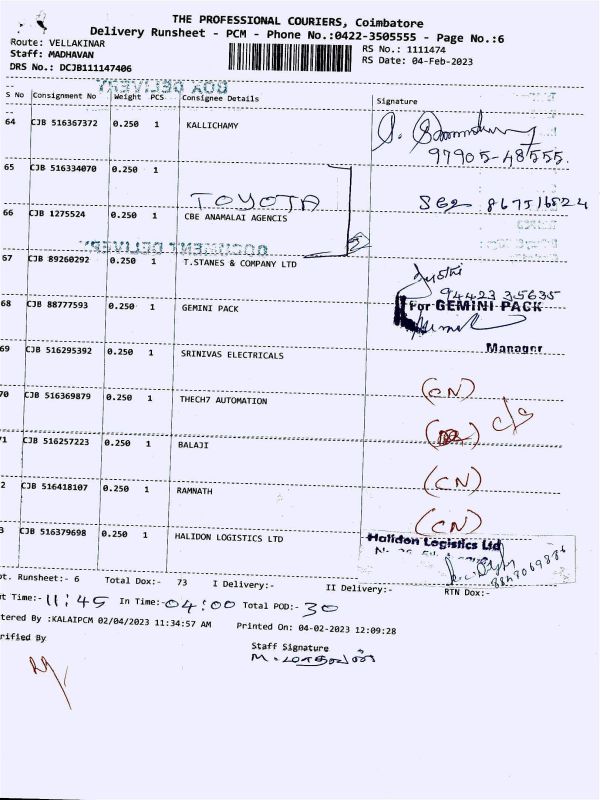 THE PROFESSIONAL COURIERS, Coimbatore
Delivery Runsheet - PCM - Phone No.:0422-3505555 - Page No.:6
Route: VELLAKINAR
RS No.: 1111474
Staff: MADHAVAN
RS Date: 04-Feb-2023
DRS No.: DCJB111147406
BOA DELIVERY
S No Consignment No Weight PCS Consignee Details Signature
64 CJB 516367372 0.250 1 KALLICHAMY
97905-48555.
65 CJB 516334070 0.250 1
TOYOTA
66 CJB 1275524 0.250 1 CBE ANAMALAI AGENCIS
DOCUMENT DELIVERY
67 CJB 89260292 0.250 1 T.STANES & COMPANY LTD
94423 35635
68 CJB 88777593 0.250 1 GEMINI PACK
For GEMINI PACK
Manager
69 CJB 516295392 0.250 1 SRINIVAS ELECTRICALS
(CN)
70 CJB 516369879 0.250 1 THECH7 AUTOMATION
71 CJB 516257223 0.250 1 BALAJI
(CN)
2 CJB 516418107 0.250 1 RAMNATH
(CN)
3 CJB 516379698 0.250 1 HALIDON LOGISTICS LTD
Halidon Logistics Ltd
pt. Runsheet:- 6 Total Dox:- 73 I Delivery:- II Delivery:- RTN Dox:-
ut Time:- 11:45 In Time:- 04:00 Total POD:- 30
tered By :KALAIPCM 02/04/2023 11:34:57 AM Printed On: 04-02-2023 12:09:28
rified By
Staff Signature
M. மாதவன்